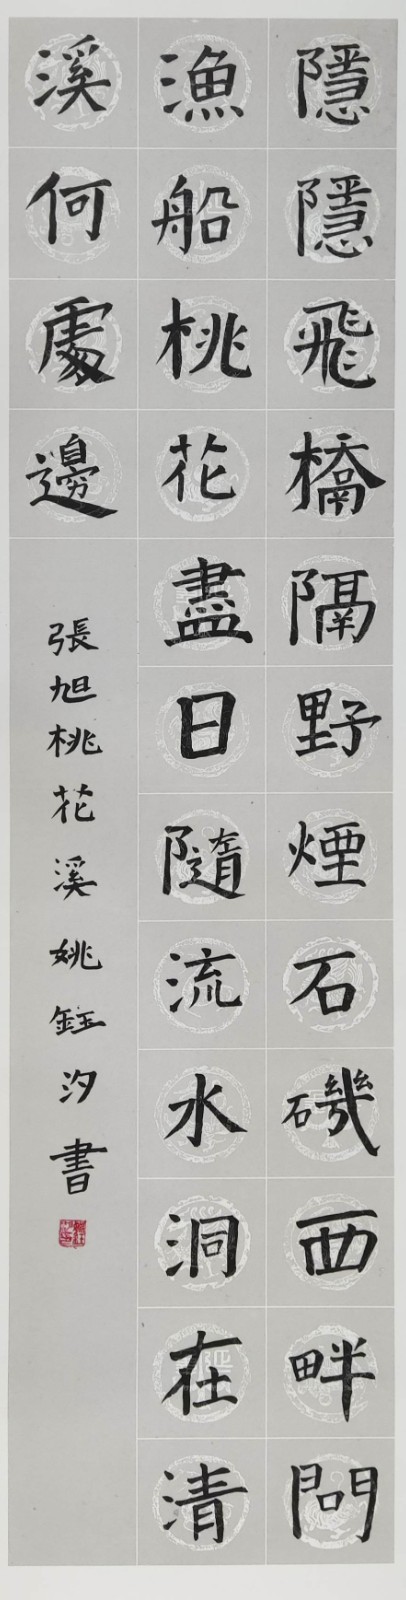 隱隱飛橋隔野煙石磯西畔問
漁船桃花盡日隨流水洞在清
溪何處邊
張旭桃花溪姚鈺汐書